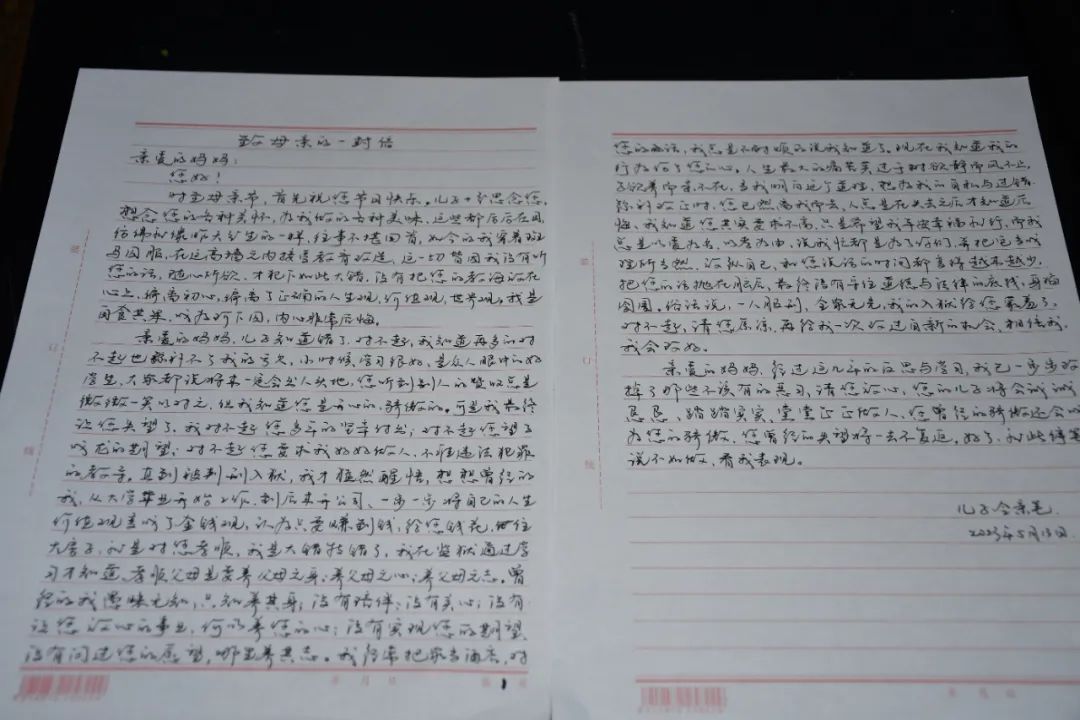 给母亲的一封信
亲爱的妈妈：
您好！
时至母亲节，首先祝您节日快乐。儿子十分思念您，
想念您的各种关怀，为我做的各种美味，这些都历历在目，
仿佛就像昨天发生的一样，往事不堪回首，如今的我穿着斑
马囚服，在这高墙之内接受教育改造，这一切皆因我没有听
您的话，随心所欲，才犯下如此大错，没有把您的教诲放在
心上，偏离初心，偏离了正确的人生观，价值观，世界观，我是
因贪共举，成为阶下囚，内心非常后悔。
亲爱的妈妈，儿子知道错了，对不起，我知道再多的对
不起也弥补不了我的亏欠，小时候，学习很好，是众人眼中的好
学生，大家都说将来一定会出人头地，您听到别人的赞叹总是
微微一笑以对之，但我知道您是开心的，骄傲的。可是我最终
让您失望了，我对不起您多年的坚辛付出；对不起您望子
成龙的期望；对不起您要求我好好做人，不准违法犯罪
的教育。直到被判刑入狱，我才猛然醒悟，想想曾经的
我，从大学毕业开始工作，到后来开公司、一步一步将自己的人生
价值观变成了金钱观，认为只要赚到钱，给您钱花，住
大房子，就是对您孝顺，我是大错特错了，我在监狱通过学
习才知道，孝顺父母是要养父母之身；养父母之心；养父母之志。曾
经的我愚昧无知，只知养其身；没有陪伴；没有关心；没有
让您放心的事业，何以养您的心；没有实现您的期望，
没有问过您的愿望，哪里养其志。我经常把家当酒店，对
您的电话，我总是不耐烦的说我知道了。现在我知道我的
行为伤了您的心。人生最大的痛苦莫过于树欲静而风不止，
子欲养而亲不在，当我明白这个道理，想为我的自私与过错
弥补改正时，您已然离我而去，人总是在失去之后才知道后
悔，我知道您其实要求不高，只是希望我平安幸福就行，而我
总是以爱为名，以孝为由，说我忙都是为了你们，并把这当成
理所当然，放纵自己，和您说话的时间都变得越来越少，
把您的话抛在脑后，最终没有守住道德与法律的底线，身陷
囹圄。俗话说，一人服刑，全家无光，我的入狱给您蒙羞了，
对不起，请您原谅，再给我一次改过自新的机会，相信我，
我会改好。
亲爱的妈妈，经过这几年的反思与学习，我已一步步改
掉了那些不该有的恶习，请您放心，您的儿子将会诚诚
恳恳、踏踏实实、堂堂正正做人，您曾经的骄傲还会成
为您的骄傲，您曾经的失望将一去不复返，好了，就此停笔
说不如做，看我表现。
儿子
2023年5月13日